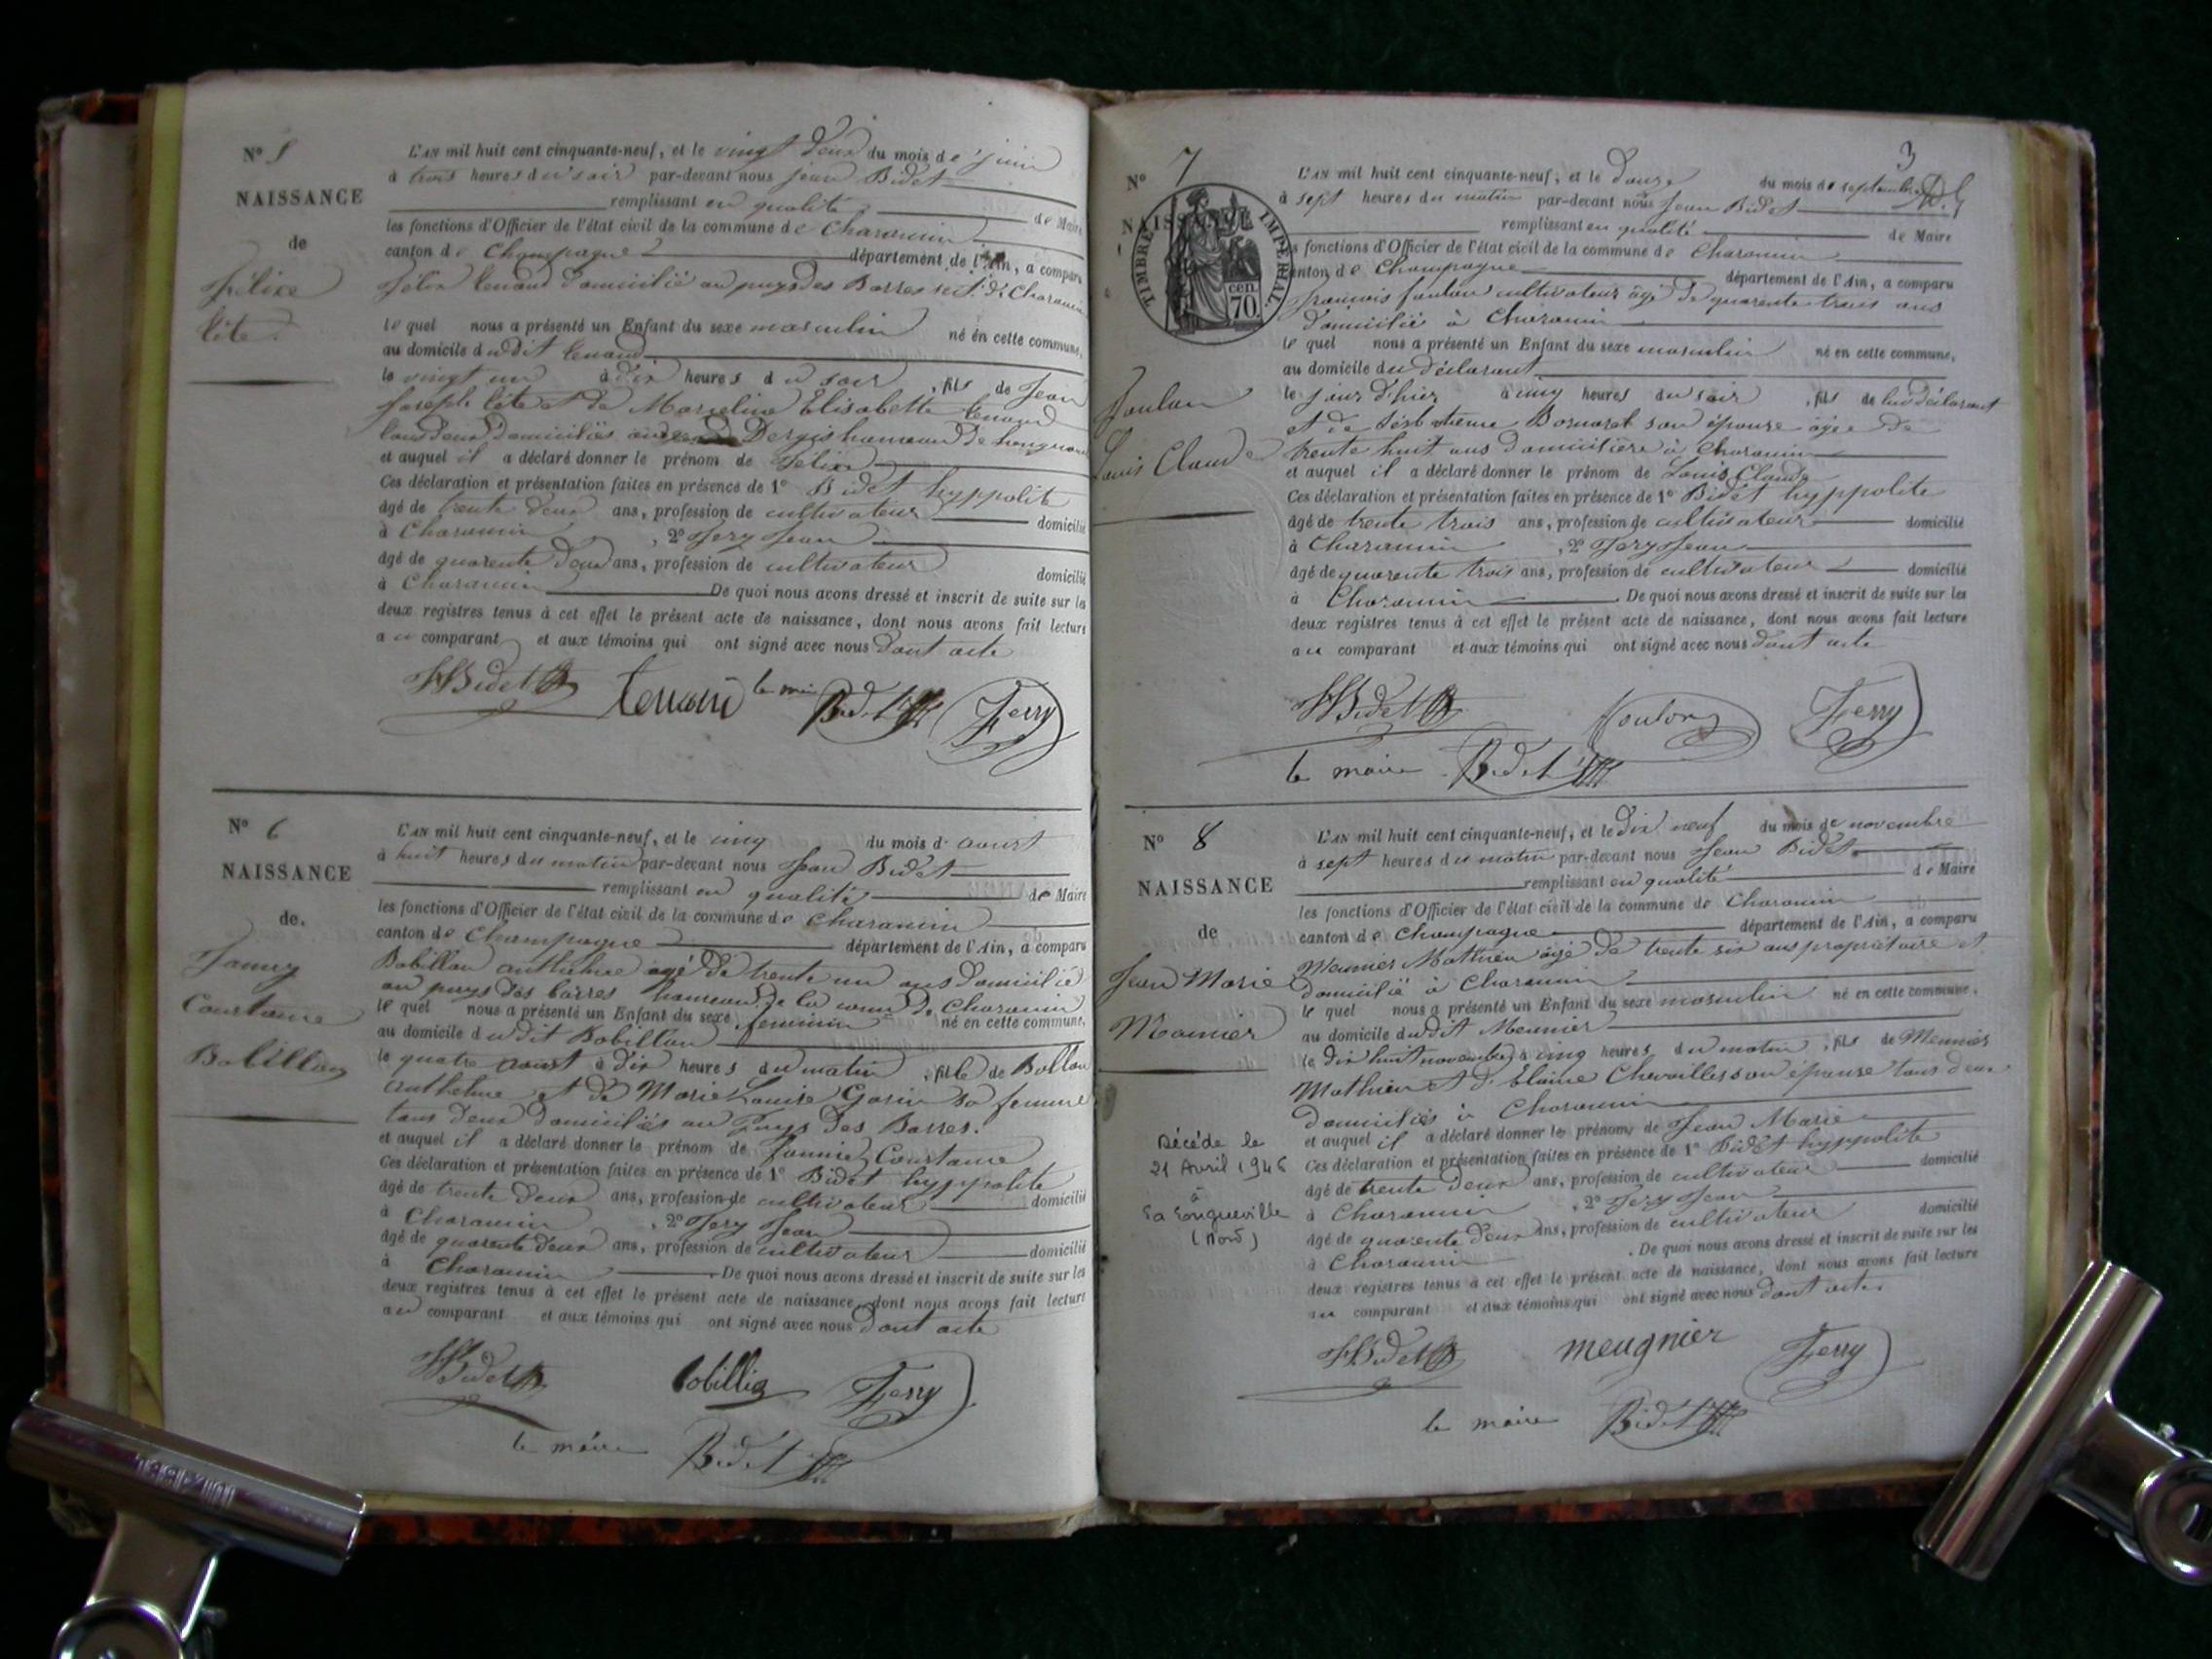 N° 5
NAISSANCE
de
Félix
Léte.
L'AN mil huit cent cinquante-neuf, et le vingt deux du mois de juin
à trois heures du soir par-devant nous jean Bidet
remplissant en qualité de Maire
les fonctions d'Officier de l'état civil de la commune de Charancin
canton de Champagne département de l'Ain, a comparu
félix tenand domicilié au puys des Barres de Charancin
le quel nous a présenté un Enfant du sexe masculin né en cette commune,
au domicile dudit tenand
le vingt un à dix heures du soir, fils de Jean
Joseph léte et de Marceline Elisabette tenand
tous deux domiciliés hameau de
et auquel il a déclaré donner le prénom de félix
Ces déclaration et présentation faites en présence de 1° Bidet hyppolite
âgé de trente deux ans, profession de cultivateur domicilié
à Charancin, 2° Fery Jean
âgé de quarente deux ans, profession de cultivateur domicilié
à Charancin De quoi nous avons dressé et inscrit de suite sur les
deux registres tenus à cet effet le présent acte de naissance, dont nous avons fait lecture
au comparant et aux témoins qui ont signé avec nous dont acte
HBidet tenand le maire Bidet Ferry
N° 6
NAISSANCE
de.
Fanny
Constance
Bobillon
L'AN mil huit cent cinquante-neuf, et le cinq du mois d'aoust
à huit heures du matin par-devant nous Jean Bidet
remplissant en qualité de Maire
les fonctions d'Officier de l'état civil de la commune de Charancin
canton de Champagne département de l'Ain, a comparu
Bobillon anthelme agé de trente un ans domicilié
au puys des barres hameau de la comm. de Charancin
le quel nous a présenté un Enfant du sexe feminin né en cette commune,
au domicile dudit Bobillon
le quatre aoust à dix heures du matin, fille de Bollon
anthelme et de Marie Louise Garin sa femme
tous deux domiciliés au Puys des Barres.
et auquel il a déclaré donner le prénom de fannie Constance
Ces déclaration et présentation faites en présence de 1° Bidet hyppolite
âgé de trente deux ans, profession de cultivateur domicilié
à Charancin, 2° Fery Jean
âgé de quarente deux ans, profession de cultivateur domicilié
à Charancin De quoi nous avons dressé et inscrit de suite sur les
deux registres tenus à cet effet le présent acte de naissance, dont nous avons fait lecture
au comparant et aux témoins qui ont signé avec nous dont acte
HBidet Ferry
le maire Bidet
3
N° 7
NAISSANCE
TIMBRE IMPÉRIAL.
cen. 70.
Foulon
Louis Claude
L'AN mil huit cent cinquante-neuf, et le douze du mois de septembre
à sept heures du matin par-devant nous Jean Bidet
remplissant en qualité de Maire
les fonctions d'Officier de l'état civil de la commune de Charancin
canton de Champagne département de l'Ain, a comparu
françois foulon cultivateur âgé de quarente trois ans
domicilié à Charancin
le quel nous a présenté un Enfant du sexe masculin né en cette commune,
au domicile du déclarant
le jour d'hier à cinq heures du soir, fils de lui déclarant
et de Bornarel son épouse âgée de
trente huit ans domicilière à Charancin
et auquel il a déclaré donner le prénom de Louis Claude
Ces déclaration et présentation faites en présence de 1° Bidet hyppolite
âgé de trente trois ans, profession de cultivateur domicilié
à Charancin, 2° Fery Jean
âgé de quarente trois ans, profession de cultivateur domicilié
à Charancin. De quoi nous avons dressé et inscrit de suite sur les
deux registres tenus à cet effet le présent acte de naissance, dont nous avons fait lecture
au comparant et aux témoins qui ont signé avec nous dont acte
HBidet foulon Ferry
le maire Bidet
N° 8
NAISSANCE
de
Jean Marie
Mounier
Décédé le
21 Avril 1946
à
La Longueville
(Nord)
L'AN mil huit cent cinquante-neuf, et le dix neuf du mois de novembre
à sept heures du matin par-devant nous Jean Bidet
remplissant en qualité de Maire
les fonctions d'Officier de l'état civil de la commune de Charancin
canton de Champagne département de l'Ain, a comparu
Meunier Mathieu âgé de trente six ans propriétaire et
domicilié à Charancin
le quel nous a présenté un Enfant du sexe masculin né en cette commune,
au domicile dudit Meunier
le dix huit novembre à cinq heures du matin, fils de Meunier
Mathieu et d' Elaine Chevailler son épouse tous deux
domiciliés à Charancin
et auquel il a déclaré donner les prénoms de Jean Marie
Ces déclaration et présentation faites en présence de 1° Bidet hyppolite
âgé de trente deux ans, profession de cultivateur domicilié
à Charancin, 2° Fery Jean
âgé de quarente deux ans, profession de cultivateur domicilié
à Charancin. De quoi nous avons dressé et inscrit de suite sur les
deux registres tenus à cet effet le présent acte de naissance, dont nous avons fait lecture
au comparant et aux témoins qui ont signé avec nous dont acte.
HBidet meugnier Ferry
le maire Bidet